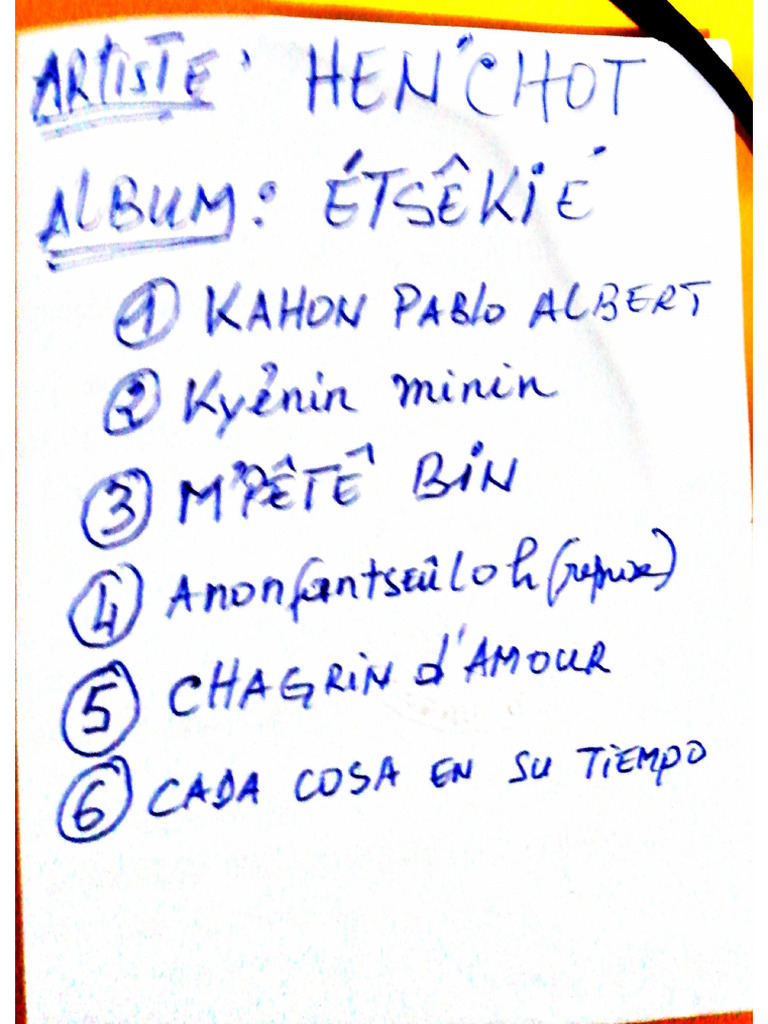 ARTISTE: HEN'CHOT
ALBUM: ÉTSÊKIÉ
1 KAHON PABLO ALBERT
2 Kyénin minin
3 M'PÊTÊ BIN
4 Anonfantseûloh (reprise)
5 CHAGRIN d'AMOUR
6 CADA COSA EN SU TIEMPO